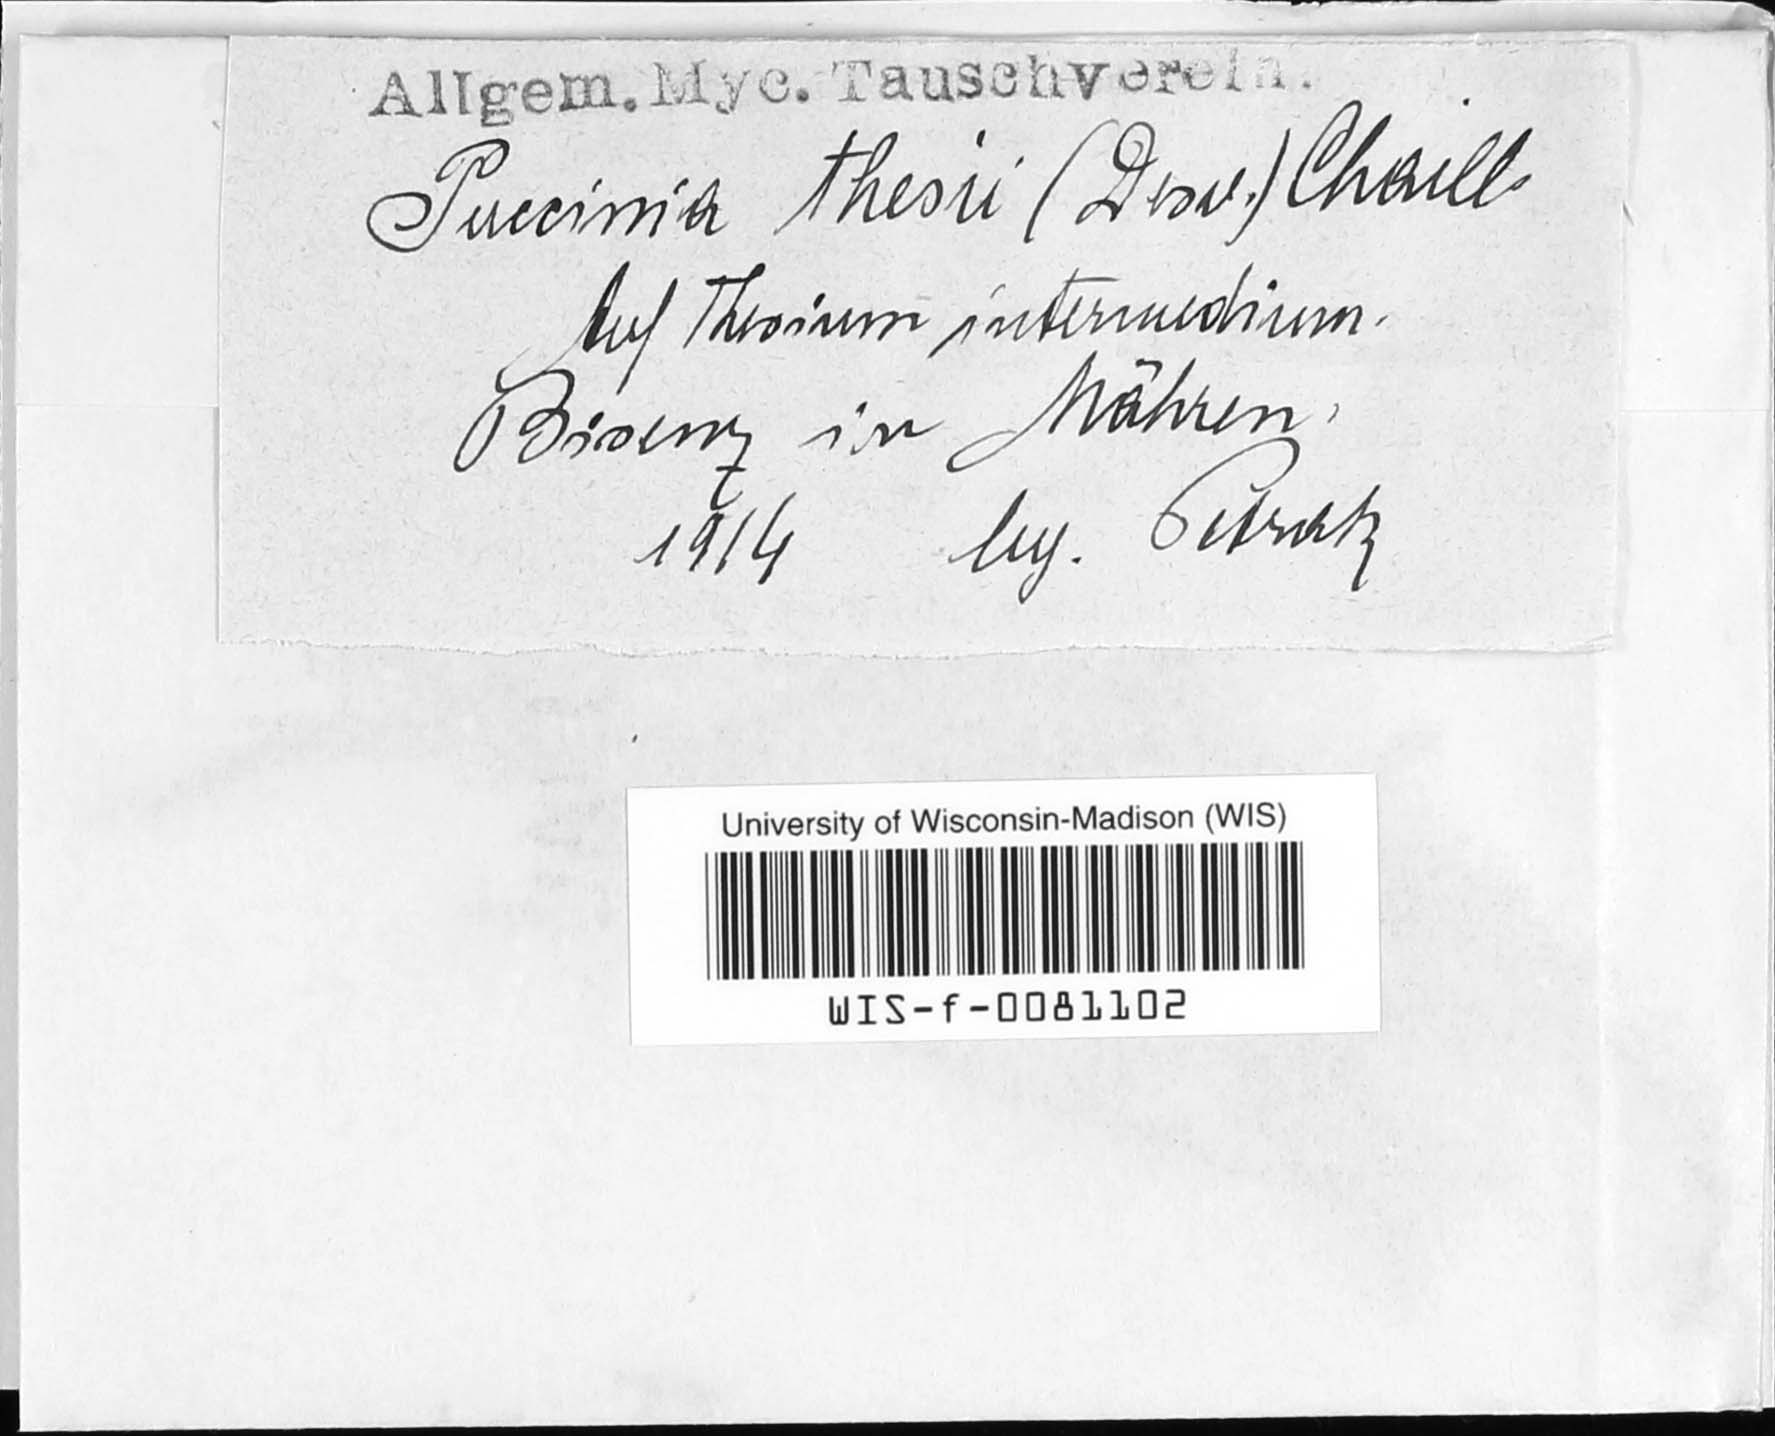 Allgem. Myc. Tauschverein.
Puccinia thesii (Desv.) Chaill.
Auf Thesium intermedium.
Bisenz in Mähren.
1914 leg. Petrak
University of Wisconsin-Madison (WIS)
WIS-f-0081102